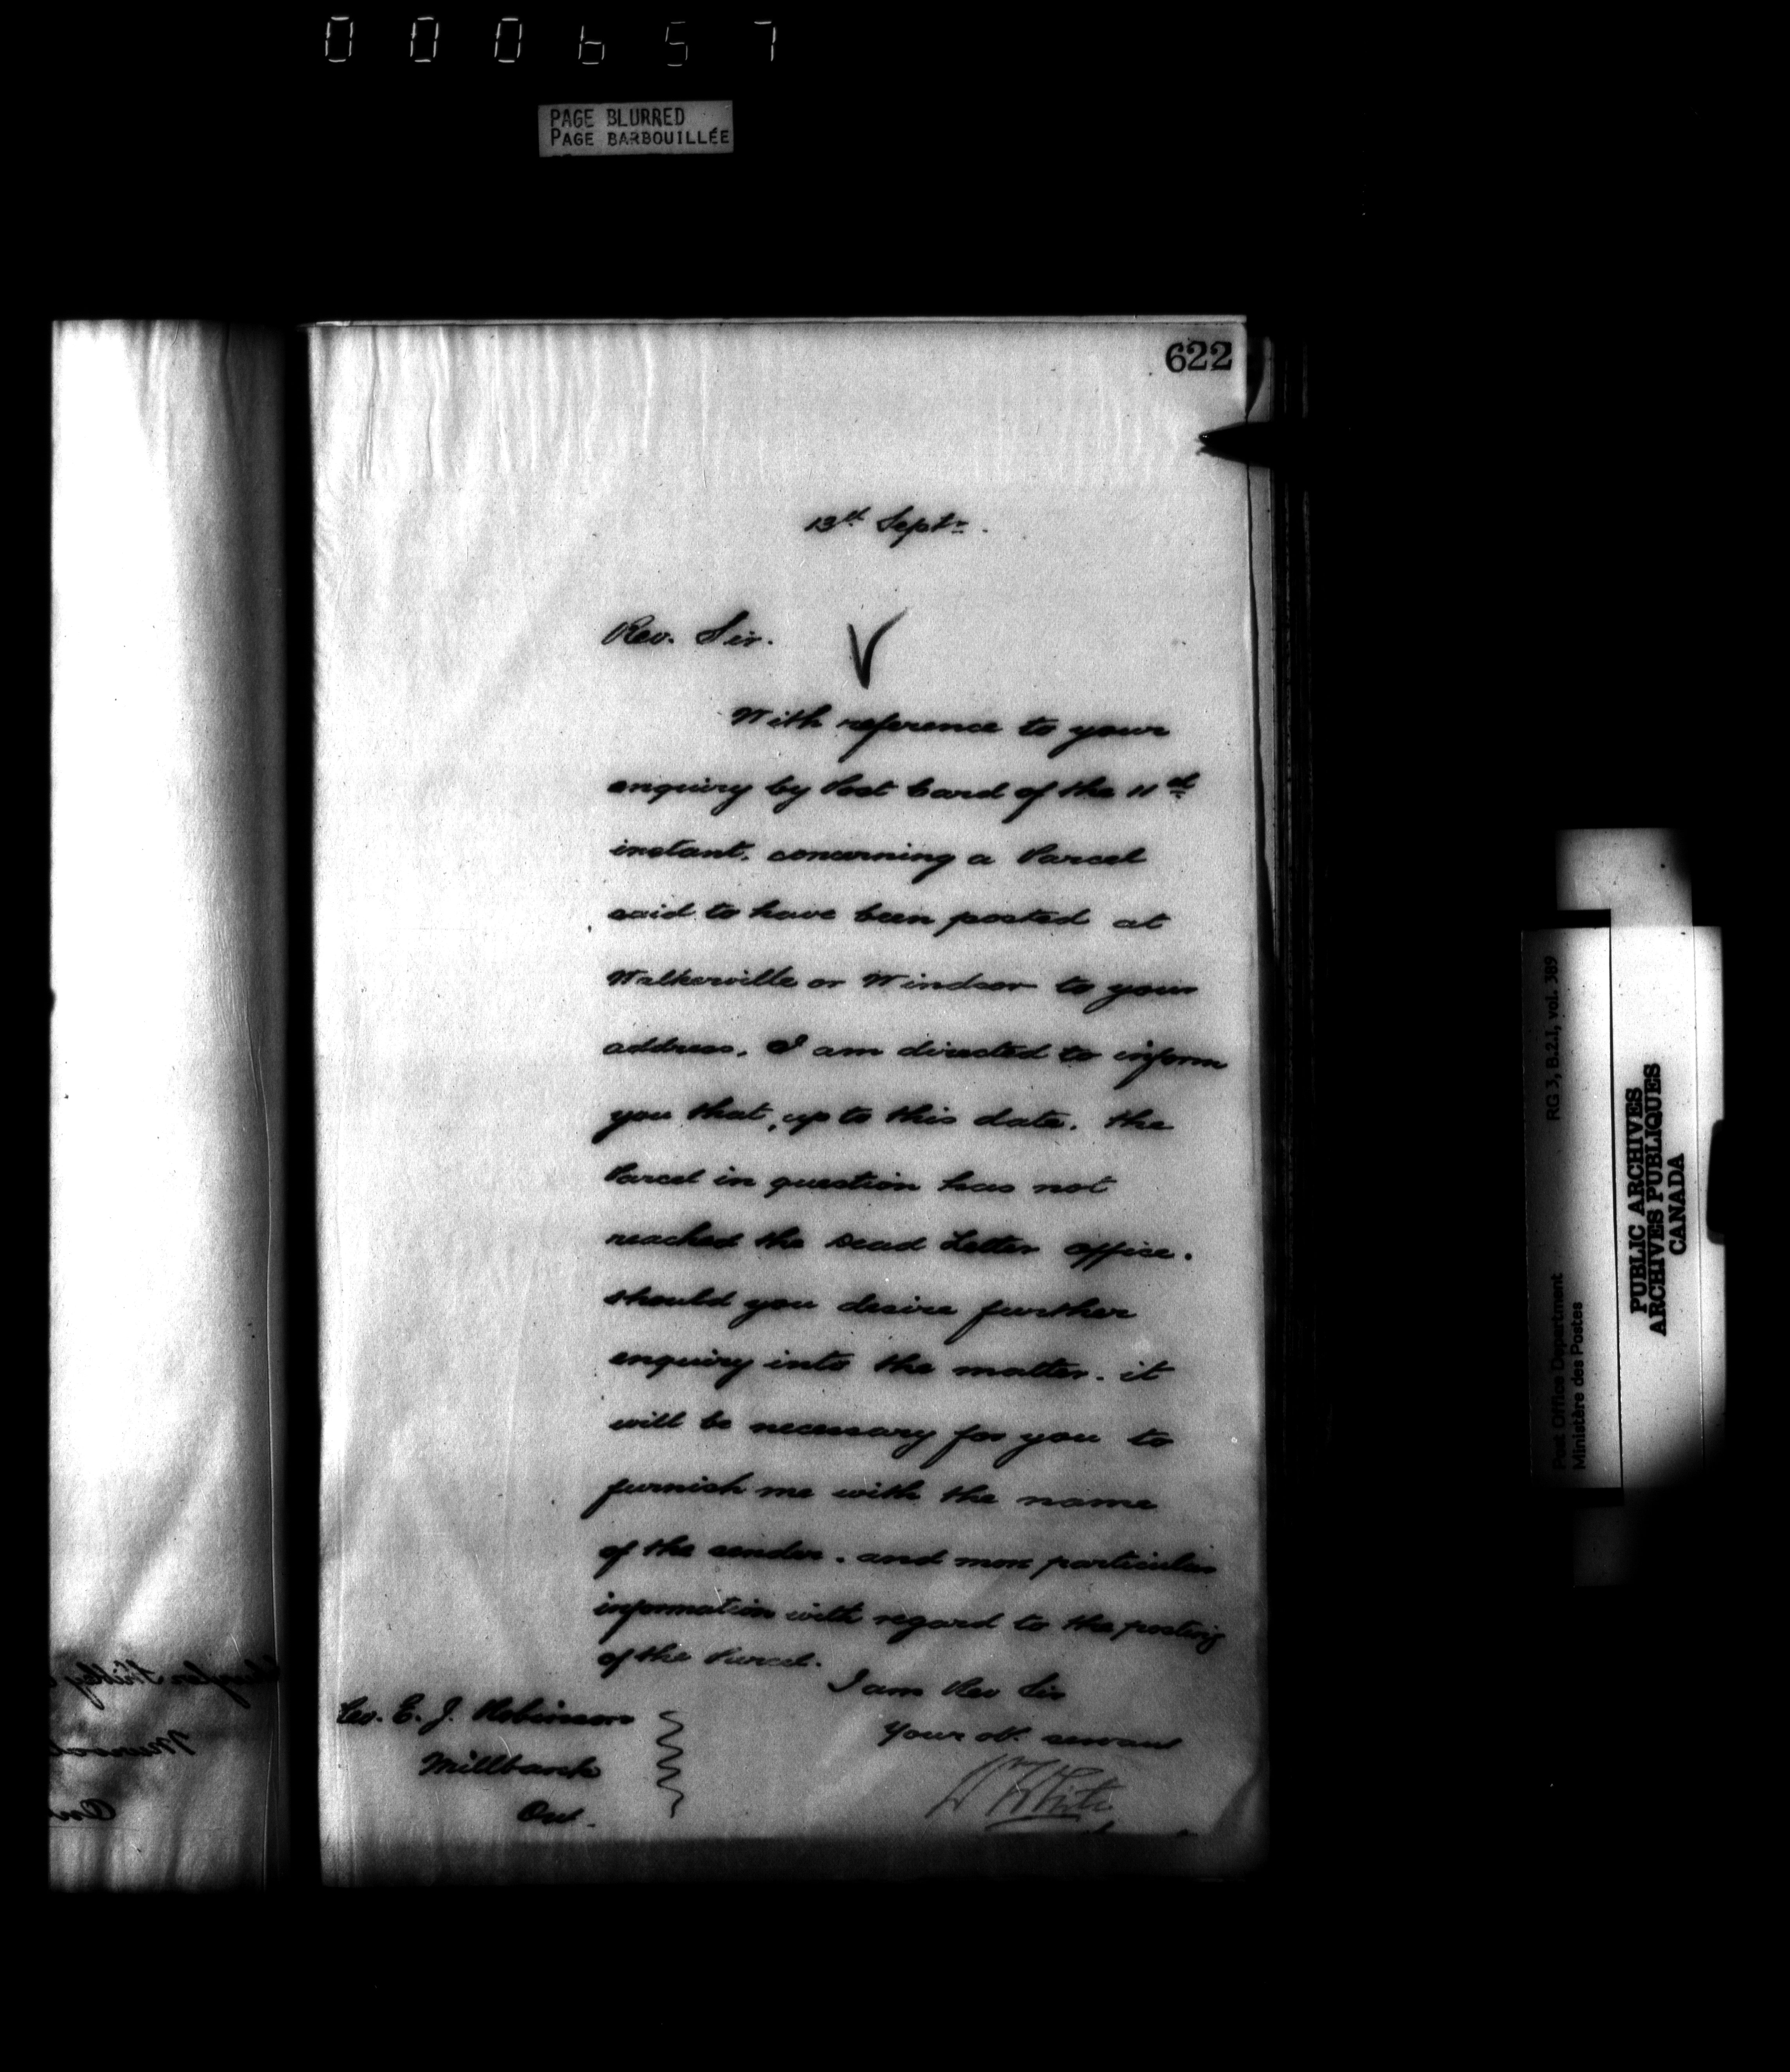 000657
PAGE BLURRED
PAGE BARBOUILLÉE
622
13th Septr.
Rev. Sir.
With reference to your
enquiry by Post Card of the 11th
instant, concerning a Parcel
said to have been posted at
Walkerville or Windsor to your
address, I am directed to inform
you that, up to this date, the
Parcel in question has not
reached the Dead Letter Office.
Should you desire further
enquiry into the matter, it
will be necessary for you to
furnish me with the name
of the sender, and more particular
information with regard to the posting
of the Parcel.
I am Rev Sir
Your obt. servant
W White
Rev. E. J. Robinson
Millbank
Ont.
RG 3, B.2.1, vol. 389
Post Office Department
Ministère des Postes
PUBLIC ARCHIVES
ARCHIVES PUBLIQUES
CANADA